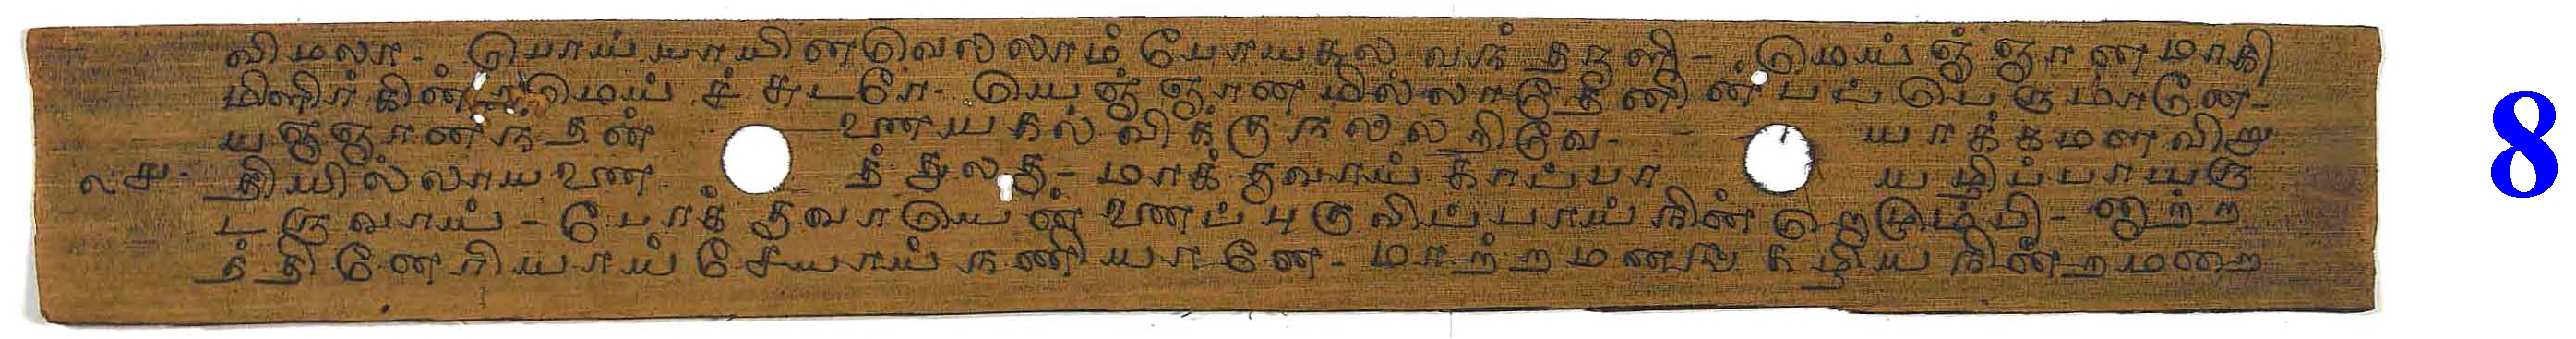 விமலா - பொய்யாயினவெல்லாம் போயகல வந்தருளி - மெய்ஞ்ஞானமாகி
மிளிர்கின்ற மெய்ச்சுடரே - யெஞ்ஞானமில்லாதேனின்பப்பெருமானே -
யஞ்ஞானந்தன் னையகல்விக்குநல்லறிவே - யாக்கமளவிறு
தியில்லாயனை த்துலகு - மாக்குவாய் காப்பா யழிப்பாயரு
டருவாய் - போக்குவாயென்னைப்புகுவிப்பாய் நின்றொழும்பி - னாற்ற
த்தினேரியாய் சேயாய் நணியானே - மாற்றமனங்கழிய நின்றமறை
8